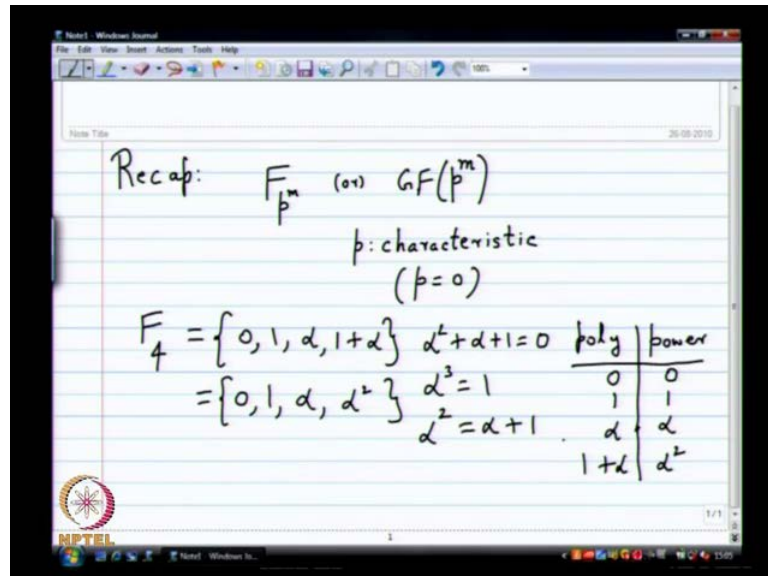 Note1 - Windows Journal
File Edit View Insert Actions Tools Help
100%
Note Title
26-08-2010
Recap: F_{p^m} (or) GF(p^m)
p: characteristic
(p=0)
F_4 = {0, 1, α, 1+α} α²+α+1=0
= {0, 1, α, α²} α³ = 1
α² = α+1.
poly | power
0 | 0
1 | 1
α | α
1+α | α²
1/1
1
NPTEL
Note1 - Windows Jo...
15:05